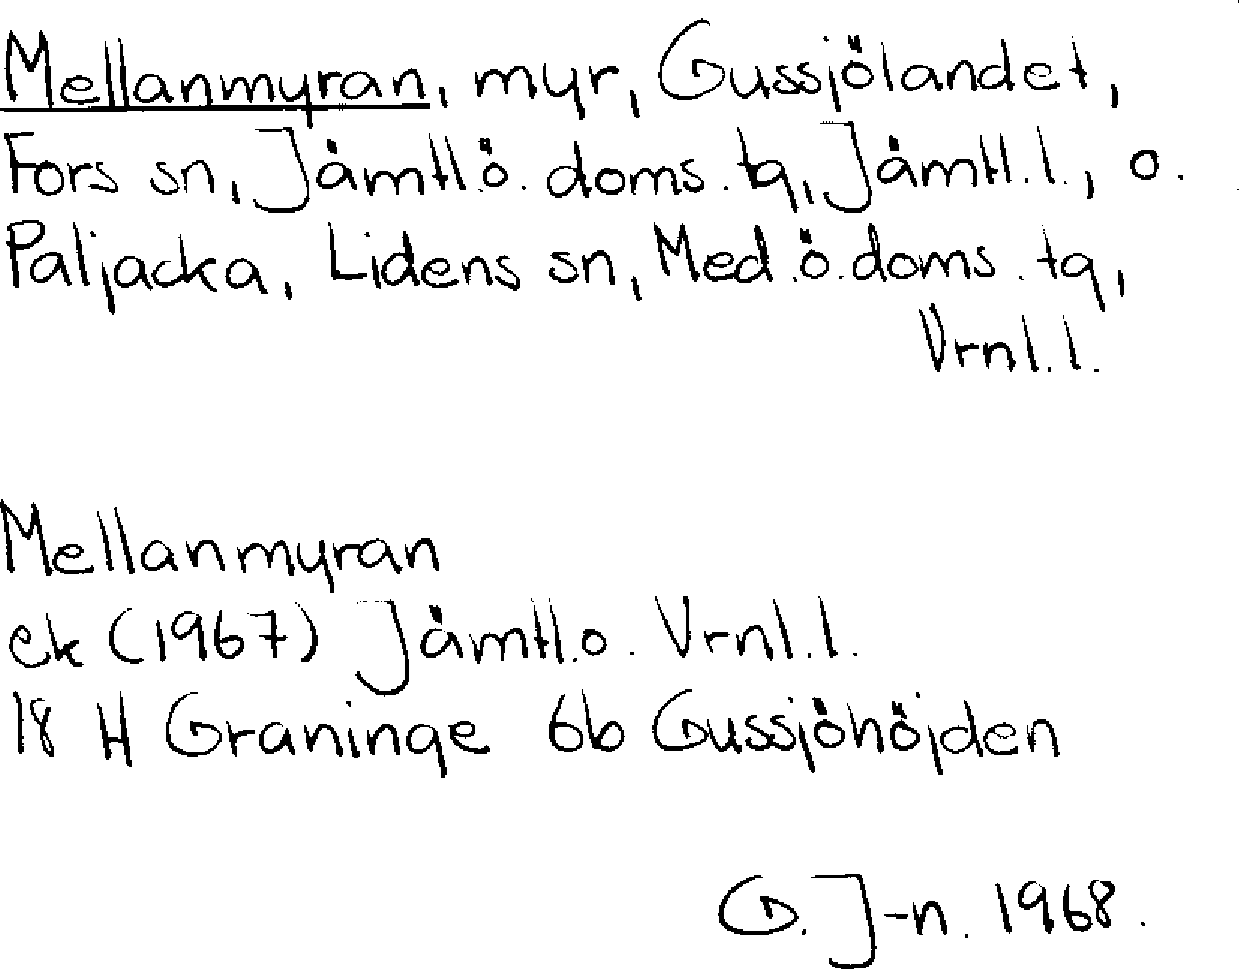 Mellanmyran, myr, Gussjölandet,
Fors sn, Jämtl.ö. doms. tg, Jämtl.l., o.
Paljacka, Lidens sn, Med.ö.doms.tg,
Vrnl.l.
Mellanmyran
ek (1967) Jämtl.o. Vrnl.l.
18 H Graninge 6b Gussjöhöjden
G. J-n. 1968.